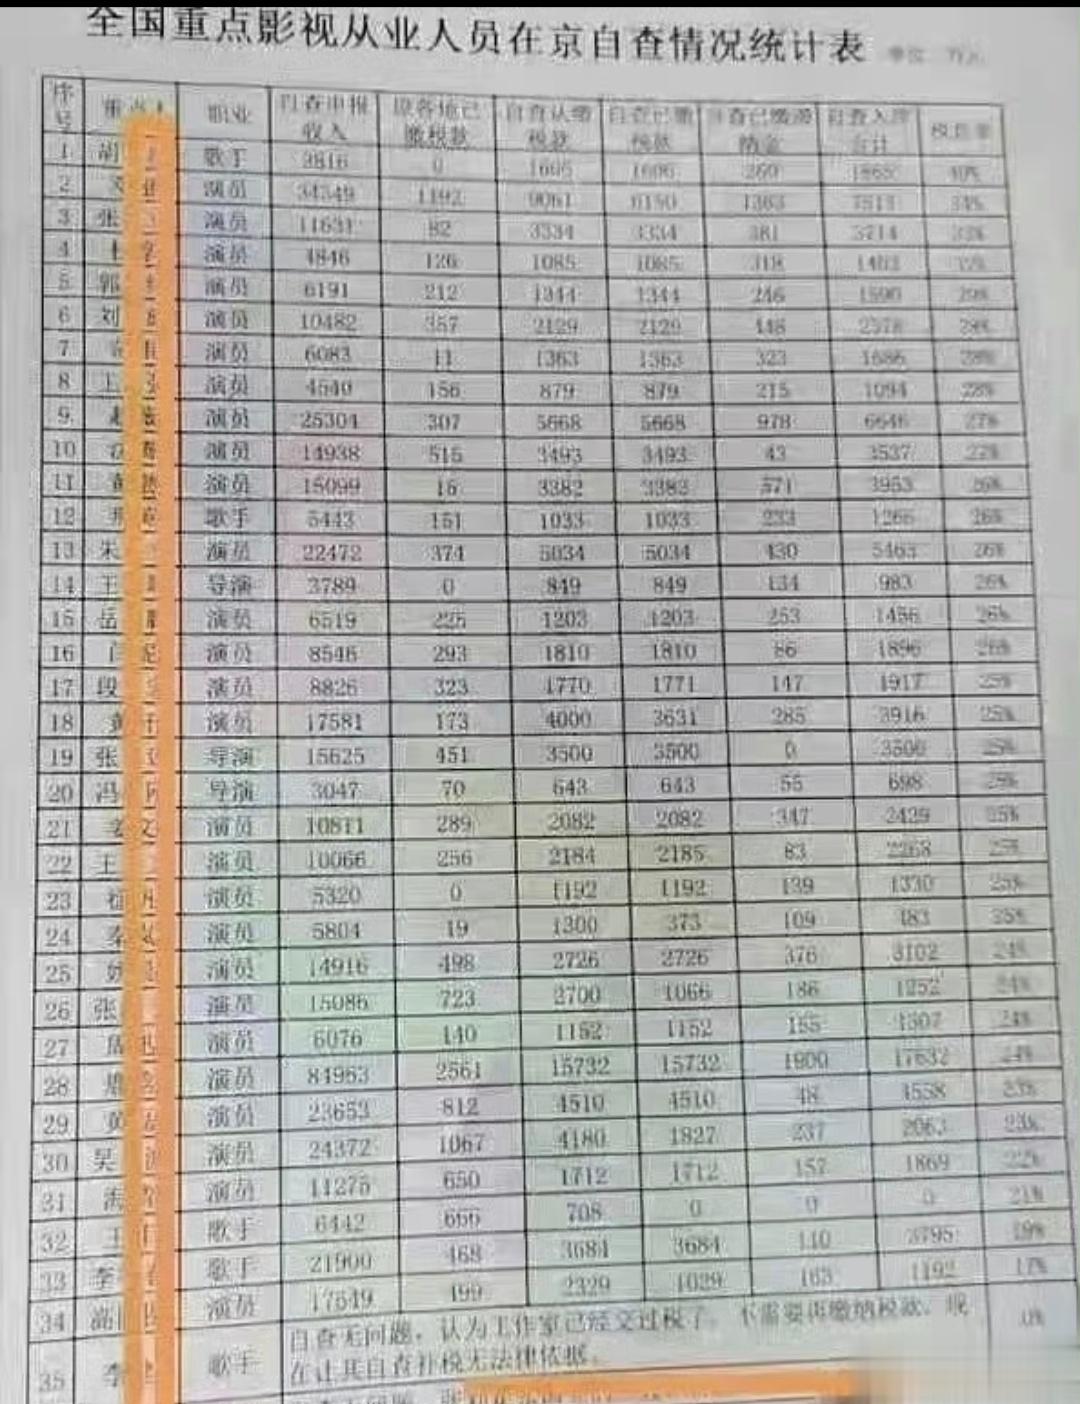 全国重点影视从业人员在京自查情况统计表
单位：万元
序号 职业 自查申报收入 原各地已缴税款 自查认缴税款 自查已缴税款 自查已缴滞纳金 自查入库合计
1 胡 歌手 3816 0 1606 1606 260 1865 40%
2 演员 34349 1192 6150 1363 7513 34%
3 张 演员 11631 82 3334 3334 381 3714 33%
4 演员 4846 126 1085 1085 318 1403 32%
5 郭 演员 6191 212 1344 1344 246 1590 29%
6 刘 演员 10482 357 2129 2129 448 28%
7 演员 6083 11 1363 1363 323 1686 28%
8 王 演员 4540 156 879 879 215 1094 28%
9 演员 25304 307 5668 5668 978 6646 27%
10 演员 14938 515 3493 3493 43 3537 27%
11 黄 演员 15099 16 3382 3383 571 3953 26%
12 歌手 5443 151 1033 1033 233 1266 26%
13 朱 演员 22472 374 5034 5034 430 5463 26%
14 王 导演 3789 0 849 849 134 983 26%
15 岳 演员 6519 225 1203 1203 253 1456 26%
16 演员 8546 293 1810 1810 86 1896 26%
17 段 演员 8826 323 1770 1771 147 1917 25%
18 黄 演员 17581 173 4000 3631 285 3916 25%
19 张 导演 15625 451 3500 3500 0 3500 25%
20 冯 导演 3047 70 643 643 55 698 25%
21 演员 10811 289 2082 2082 347 2429 25%
22 王 演员 10066 256 2184 2185 83 2268 25%
23 演员 5320 0 1192 1192 139 1330 25%
24 秦 演员 5804 19 1300 373 109 483 25%
25 演员 14916 498 2726 2726 376 3102 24%
26 张 演员 15086 723 2700 1066 186 1252 24%
27 演员 6076 140 1152 1152 155 1307 24%
28 演员 84963 2561 15732 15732 1900 17632 24%
29 黄 演员 23653 812 4510 4510 48 4558 23%
30 吴 演员 24372 1067 4180 1827 237 2063 23%
31 演员 11275 650 1712 1712 157 1869 22%
32 王 歌手 6442 666 708 0 0 0 21%
33 李 歌手 21900 468 3684 3684 110 3795 19%
34 高 演员 17549 499 2329 1029 163 1192 17%
35 李 歌手 自查无问题，认为工作室已经交过税了，不需要再缴纳税款，现
在让其自查补税无法律依据。